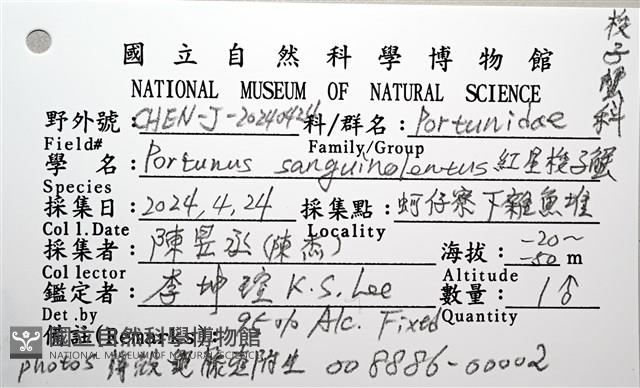 梭子蟹科
國立自然科學博物館
NATIONAL MUSEUM OF NATURAL SCIENCE
野外號：CHEN-J-20240424 科/群名：Portunidae
Field# Family/Group
學 名：Portunus sanguinolentus 紅星梭子蟹
Species
採集日：2024,4,24 採集點：蚵仔寮下雜魚堆
Coll.Date Locality
採集者：陳昱丞(陳杰) 海拔：-20～-50 m
Collector Altitude
鑑定者：李坤瑄 K.S. Lee 數量：1♂
Det.by Quantity
備註(Remarks)：95% Alc. Fixed
國立自然科學博物館
NATIONAL MUSEUM OF NATURAL SCIENCE
photos 附生 008886-00002